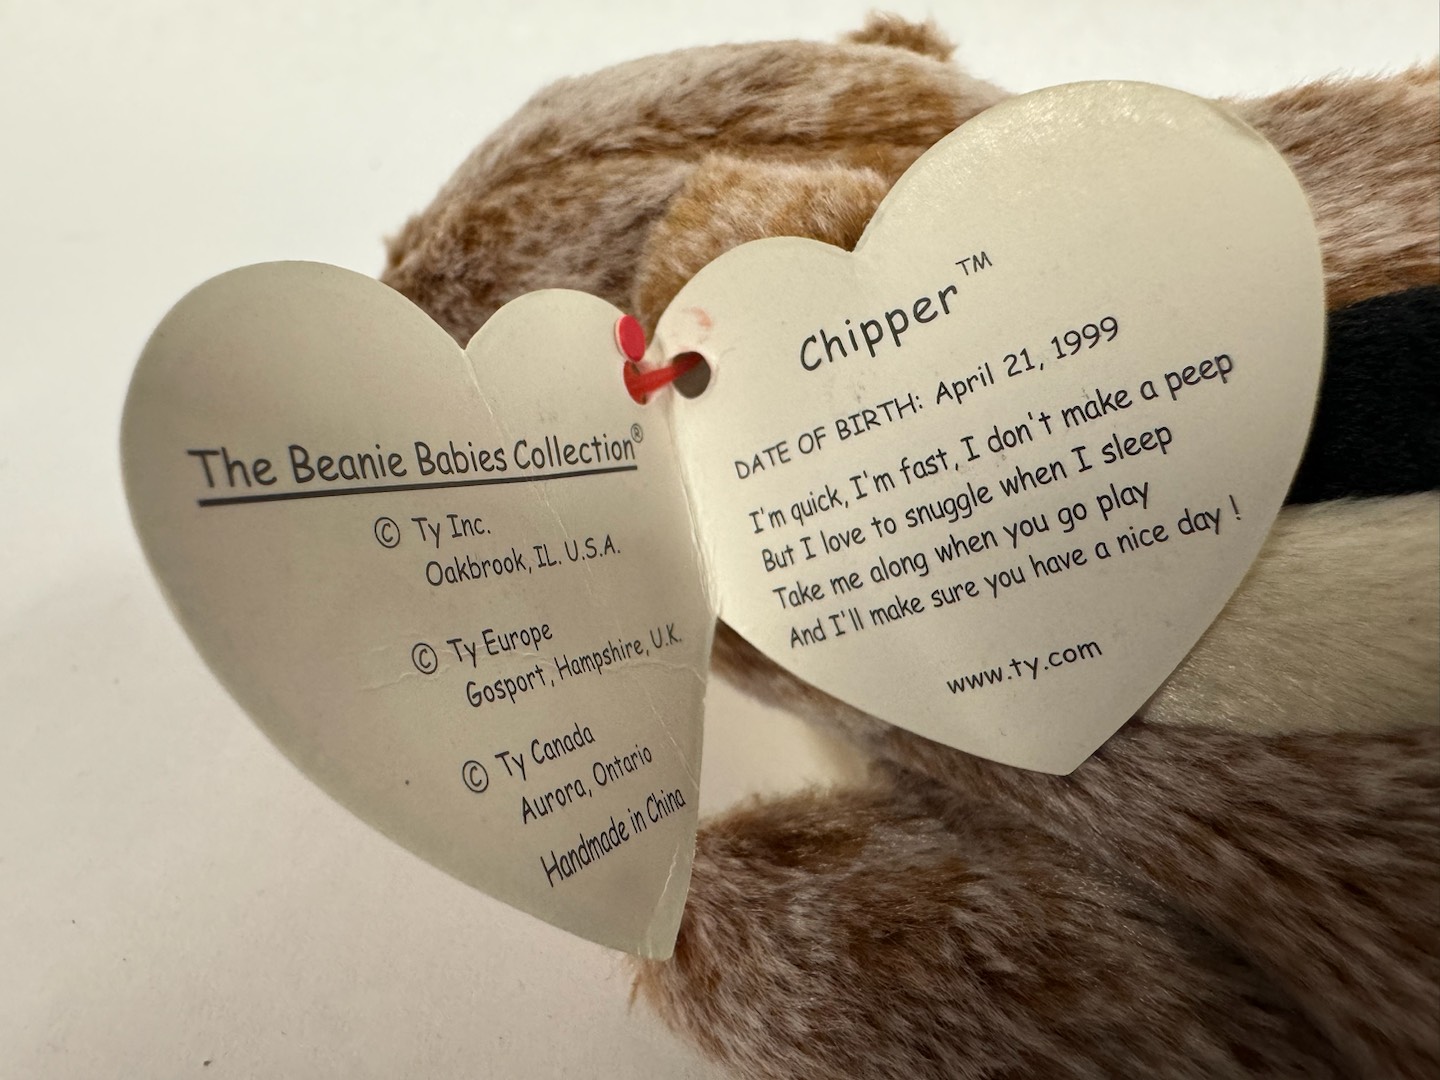 The Beanie Babies Collection®
© Ty Inc.
Oakbrook, IL. U.S.A.
© Ty Europe
Gosport, Hampshire, U.K.
© Ty Canada
Aurora, Ontario
Handmade in China
Chipper™
DATE OF BIRTH: April 21, 1999
I'm quick, I'm fast, I don't make a peep
But I love to snuggle when I sleep
Take me along when you go play
And I'll make sure you have a nice day !
www.ty.com